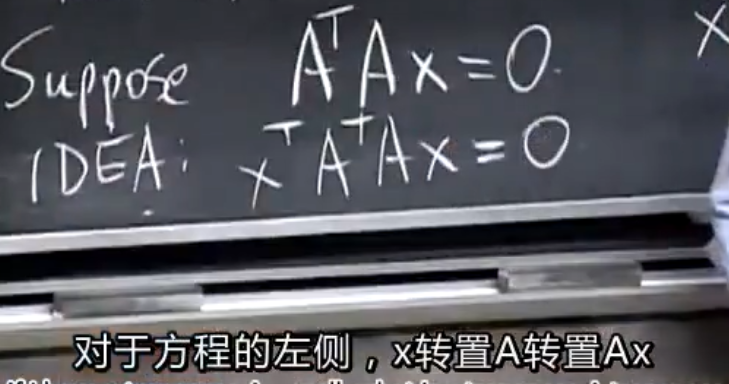 Suppose AᵀAx = 0.
IDEA: xᵀAᵀAx = 0
x
对于方程的左侧，x转置A转置Ax